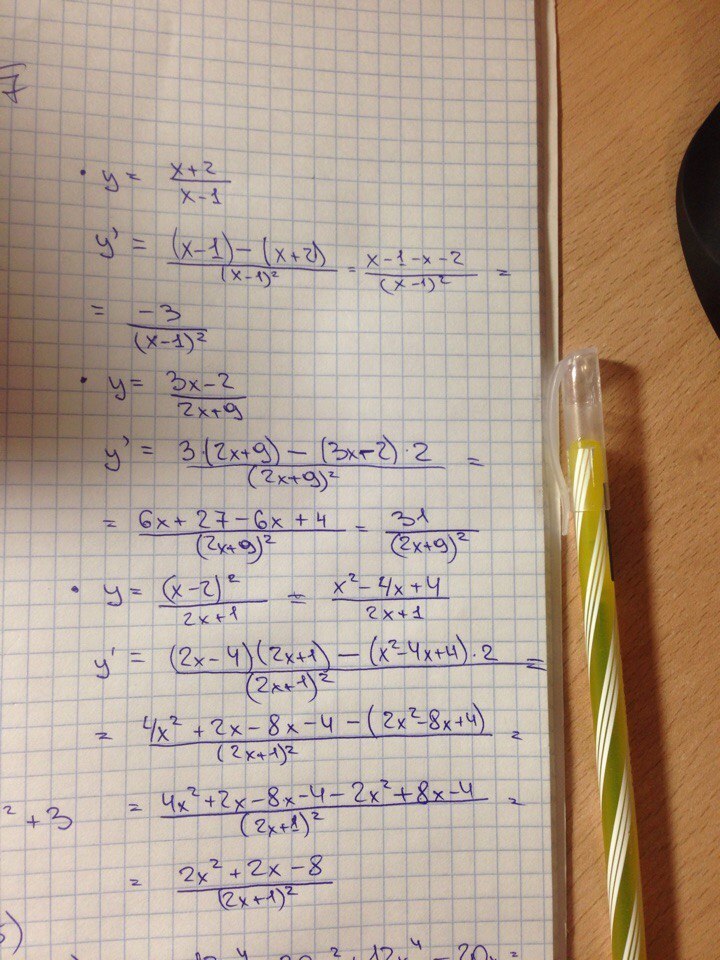 7
• y = (x+2)/(x-1)
y' = ((x-1)-(x+2))/(x-1)² = (x-1-x-2)/(x-1)² =
= -3/(x-1)²
• y = (3x-2)/(2x+9)
y' = (3·(2x+9)-(3x-2)·2)/(2x+9)² =
= (6x+27-6x+4)/(2x+9)² = 31/(2x+9)²
• y = (x-2)²/(2x+1) = (x²-4x+4)/(2x+1)
y' = ((2x-4)(2x+1)-(x²-4x+4)·2)/(2x+1)² =
= (4x²+2x-8x-4-(2x²-8x+4))/(2x+1)² =
² + 3
= (4x²+2x-8x-4-2x²+8x-4)/(2x+1)² =
= (2x²+2x-8)/(2x+1)²